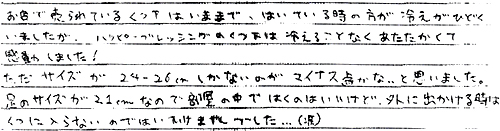 お店で売られているくつ下はいままで、はいている時の方が冷えがひどく
いましたが、ハッピーブレッシングのくつ下は冷えることなくあたたかくて
感動しました！
ただサイズが24-26cmしかないのがマイナス点かな。と思いました。
足のサイズが21cmなので部屋の中ではくのはいいけど、外に出かける時は
くつに入らないのではいけませんでした…(涙)